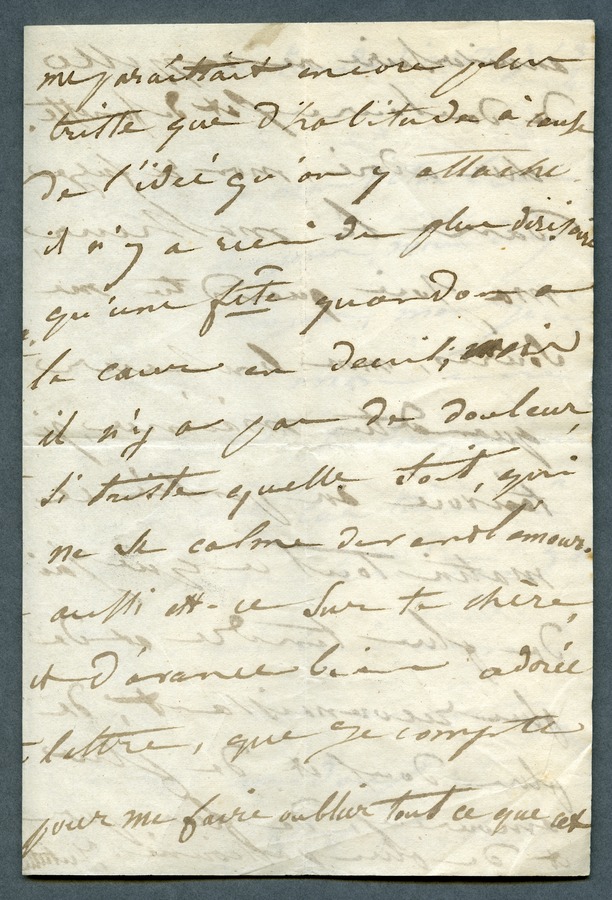 me paraîttait encore plus
triste que d'habitude à cause
de l'idée qu'on y attache.
il n'y a rien de plus
qu'une fête quand on a
le cœur en deuil, mais
il n'y a pas de douleur,
si triste quelle soit, qui
ne se calme devant l'amour.
aussi est-ce sur ta chère,
et d'avance bien adorée
lettre, que je compte
pour me faire oublier tout ce que cet